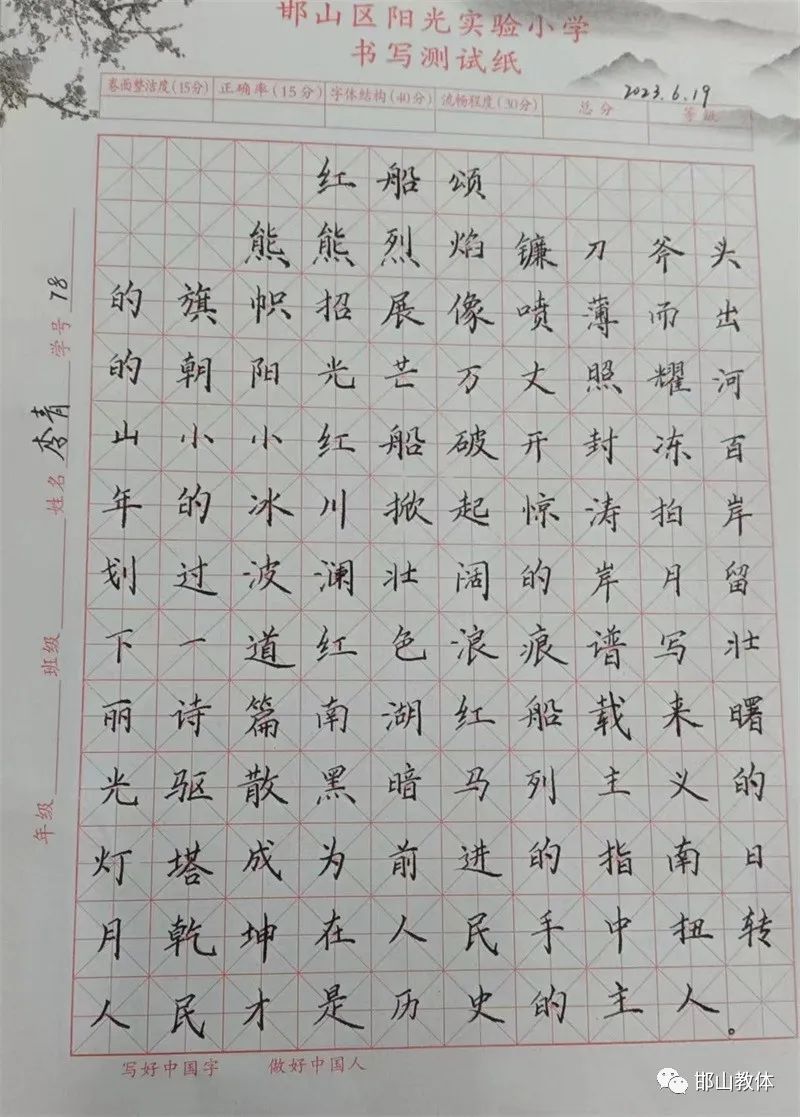 邯山区阳光实验小学
书写测试纸
2023.6.19
卷面整洁度(15分) 正确率(15分) 字体结构(40分) 流畅程度(30分) 总分 等级
红船颂
熊熊烈焰镰刀斧头
的旗帜招展像喷薄而出
的朝阳光芒万丈照耀河
山小小红船破开封冻百
年的冰川掀起惊涛拍岸
划过波澜壮阔的岸月留
下一道红色浪痕谱写壮
丽诗篇南湖红船载来曙
光驱散黑暗马列主义的
灯塔成为前进的指南日
月乾坤在人民手中扭转
人民才是历史的主人。
年级 班级 姓名 李青 学号 78
写好中国字 做好中国人
邯山教体